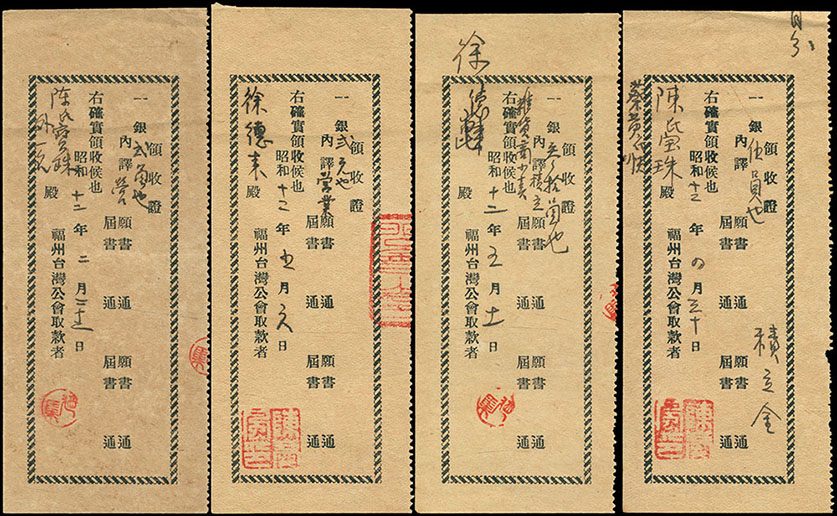 領收證
一銀弍角也
內譯 營
願書 通 願書 通
屆書 通 屆書 通
右確實領收候也
昭和十二年二月二十五日
福州台灣公會取款者
陳氏寶珠 殿
外一名
領收證
一銀弍元也
內譯 營業
願書 通 願書 通
屆書 通 屆書 通
右確實領收候也
昭和十二年五月六日
福州台灣公會取款者
徐德來 殿
領收證
一銀 拾員也
內譯 積立
雜貨商
願書 通 願書 通
屆書 通 屆書 通
右確實領收候也
昭和十二年五月十一日
福州台灣公會取款者
徐德 殿
領收證
一銀伍員也
內譯
願書 通 願書 通
屆書 通 屆書 通
積立金
右確實領收候也
昭和十二年四月三十日
福州台灣公會取款者
陳氏寶珠 殿